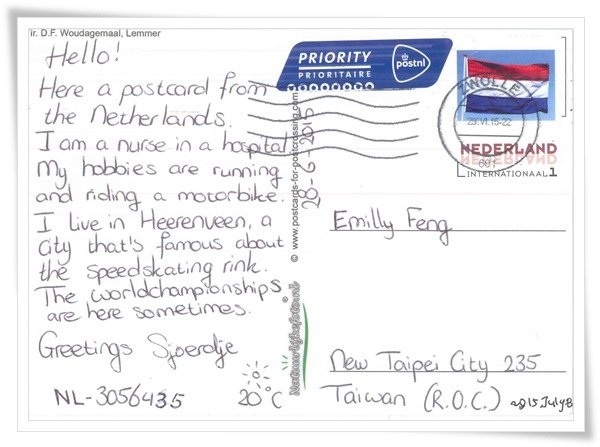 ir. D.F. Woudagemaal, Lemmer
Hello!
Here a postcard from
the Netherlands.
I am a nurse in a hospital
My hobbies are running
and riding a motorbike.
I live in Heerenveen, a
city that's famous about
the speedskating rink.
The worldchampionships
are here sometimes.
Greetings Sjoerdje
NL-3056435
20°C
© www.postcards-for-postcrossing.com
28-6-2015
PRIORITY
PRIORITAIRE
postnl
ZWOLLE
29.VI.15-22
601
NEDERLAND
INTERNATIONAAL 1
Emilly Feng
New Taipei City 235
Taiwan (R.O.C.)